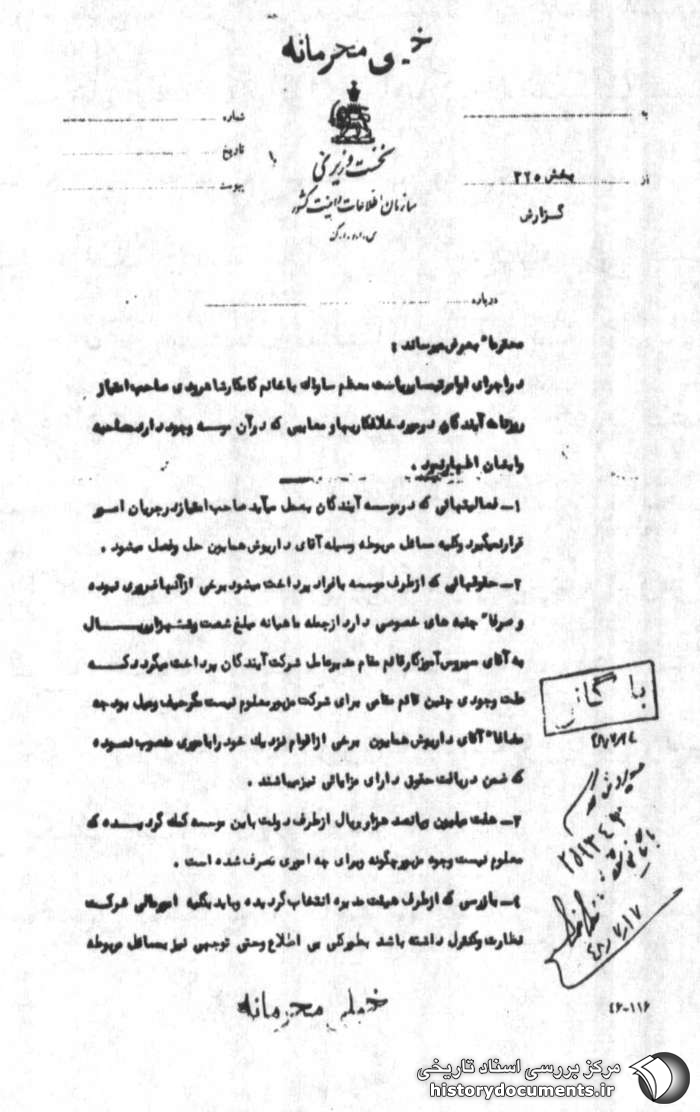 خیلی محرمانه
به
شماره
تاریخ
پیوست
نخست وزیری
از بخش ۳۲۵
سازمان اطلاعات و امنیت کشور
گزارش
س.ا.و.ا.ک
درباره
محترما" بعرض میرساند :
در اجرای اوامر تیمسار ریاست معظم ساواک با خانم کامکار شاهرودی صاحب امتیاز
روزنامه آیندگان در مورد خلافکاریها و معایبی که در آن موسسه وجود دارد مصاحبه
و ایشان اظهار نمود .
۱- فعالیتهائی که در موسسه آیندگان بعمل میآید صاحب امتیاز در جریان امور
قرار نمیگیرد و کلیه مسائل مربوطه وسیله آقای داریوش همایون حل و فصل میشود .
۲- حقوقهائی که از طرف موسسه بافراد پرداخت میشود برخی از آنها ضروری نبوده
و صرفا" جنبه های خصوصی دارد از جمله ماهیانه مبلغ شصت و هشتهزار ریال
به آقای سیروس آموزگار قائم مقام مدیر عامل شرکت آیندگان پرداخت میگردد که
علت وجودی چنین قائم مقامی برای شرکت مزبور معلوم نیست مگر حیف و میل بودجه
مضافا" آقای داریوش همایون برخی از اقوام نزدیک خود را باموری منصوب نموده
که ضمن دریافت حقوق دارای مزایائی نیز میباشند .
۳- هفت میلیون و پانصد هزار ریال از طرف دولت باین موسسه کمک گردیده که
معلوم نیست وجوه مزبور چگونه و برای چه اموری مصرف شده است .
۴- بازرسی که از طرف هیئت مدیره انتخاب گردیده و باید بکلیه امور مالی شرکت
نظارت و کنترل داشته باشد بطور کلی بی اطلاع و حتی توجهی نیز بمسائل مربوطه
بایگانی
۲۵۱۳۴۳
۴۸/۷/۱۷
خیلی محرمانه
۴۶-۱۱۶
مرکز بررسی اسناد تاریخی
historydocuments.ir